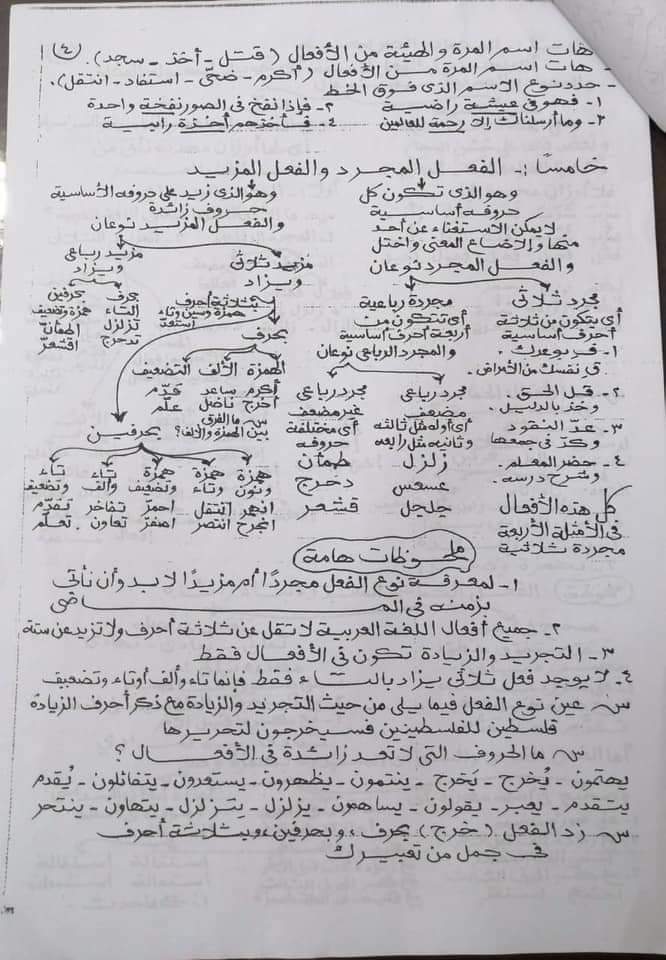 (٤)
هات اسم المرة والهيئة من الأفعال (قتل - أخذ - سجد).
- هات اسم المرة من الأفعال (أكرم - ضحّى - استفاد - انتقل).
- حدد نوع الاسم الذى فوق الخط
١- فهو فى عيشة راضية ٢- فإذا نفخ فى الصور نفخة واحدة
٣- وما أرسلناك إلا رحمة للعالمين ٤- فأخذهم أخذة رابية
خامسا :- الفعل المجرد والفعل المزيد
وهو الذى تكون كل
حروفه أساسية
لا يمكن الاستغناء عن أحد
منها وإلا ضاع المعنى واختل
والفعل المجرد نوعان
وهو الذى زيد على حروفه الأساسية
حروف زائدة
والفعل المزيد نوعان
مجرد ثلاثى
أى يتكون من ثلاثة
أحرف أساسية
١- فى بوعدك.
فى نفسك من الأمراض.
٢- قل الحق.
وخذ بالدليل.
٣- عدّ النقود
وكدّ فى جمعها
٤- حضر المعلم.
وشرح درسه.
كل هذه الأفعال
فى الأمثلة الأربعة
مجردة ثلاثية
مجردة رباعية
أى تتكون من
أربعة أحرف أساسية
والمجرد الرباعى نوعان
مجرد رباعى
مضعف
أى أوله مثل ثالثه
وثانيه مثل رابعه
زلزل
عسعس
جلجل
مجرد رباعى
غير مضعف
أى مختلفة
حروفه
طمأن
دحرج
قشعر
مزيد ثلاثى
ويزاد
بثلاثة أحرف
همزة وسين وتاء
استغفر
بحرف
الهمزة الألف التضعيف
أكرم ساعد قدّم
أخرج ناضل علّم
س ما الفرق
بين الهمزة والألف؟
بحرفين
همزة ونون همزة وتاء همزة وتضعيف تاء وألف تاء وتضعيف
انهمر انتقل احمرّ تفاخر تقدّم
انجرح انتصر اصفرّ تعاون تعلّم
مزيد رباعى
ويزاد
بحرف
التاء
تزلزل
تدحرج
بحرفين
همزة وتضعيف
اطمأنّ
اقشعرّ
ملحوظات هامة
١- لمعرفة نوع الفعل مجردًا أم مزيدًا لابد وأن نأتى
بزمنه فى المـــــــــــاضى
٢- جميع أفعال اللغة العربية لا تقل عن ثلاثة أحرف ولا تزيد عن ستة
٣- التجريد والزيادة تكون فى الأفعال فقط
٤- لا يوجد فعل ثلاثى يزاد بالتاء فقط. فإنما تاء وألف أو تاء وتضعيف
س عين نوع الفعل فيما يلى من حيث التجريد والزيادة مع ذكر أحرف الزيادة
فلسطين للفلسطينين فسيخرجون لتحريرها
س ما الحروف التى لا تعد زائدة فى الأفعال؟
يهتمون - يُخرج - يَخرج - ينتمون - يظهرون - يستعدون - يتفائلون - يُقدم
يتقدم - يعبر - يقولون - يساهمون - يزلزل - يتزلزل - يتهاون - ينتحر
س زد الفعل (خرج) بحرف، وبحرفين، وبثلاثة أحرف
فى جمل من تعبيرك